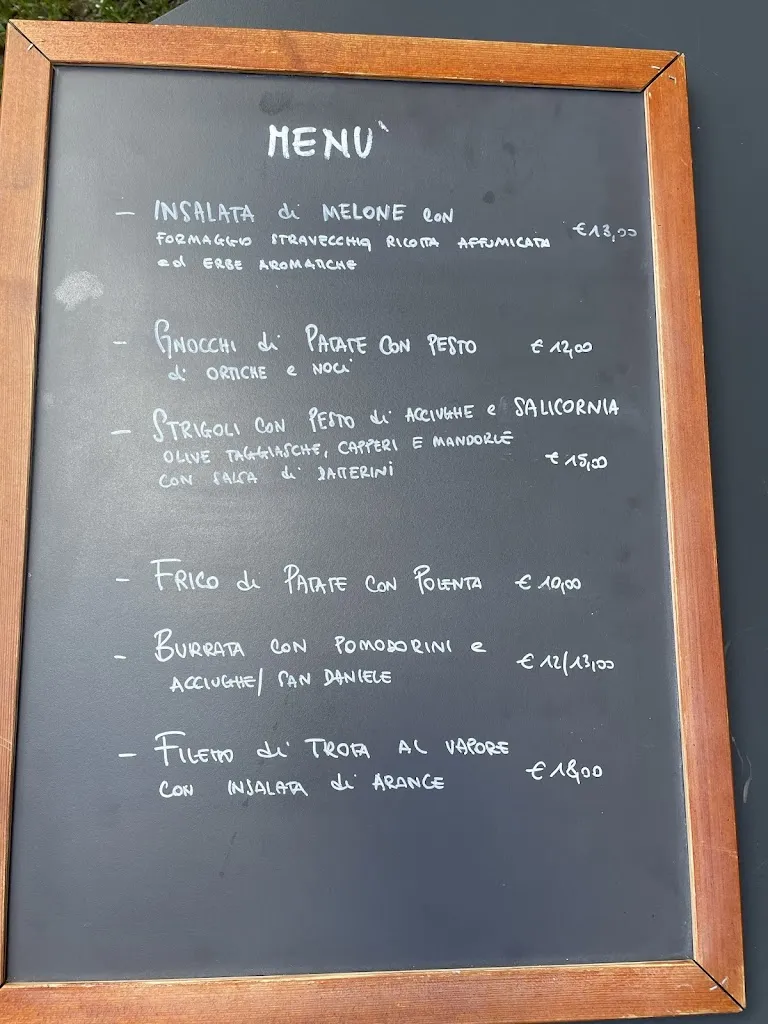 MENU'
- INSALATA di MELONE CON
FORMAGGIO STRAVECCHIO, RICOTTA AFFUMICATA €13,00
ed ERBE AROMATICHE
- GNOCCHI di PATATE CON PESTO €12,00
di ORTICHE e NOCI
- STRIGOLI CON PESTO di ACCIUGHE e SALICORNIA
OLIVE TAGGIASCHE, CAPPERI E MANDORLE
CON SALSA di DATTERINI €15,00
- FRICO di PATATE CON POLENTA €10,00
- BURRATA CON POMODORINI e €12/13,00
ACCIUGHE/ SAN DANIELE
- FILETTO di TROTA AL VAPORE
CON INSALATA di ARANCE €18,00